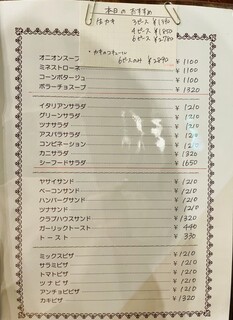 本日のおすすめ
生カキ 3ピース ¥1390
4ピース ¥1850
6ピース ¥2780
・カキのコキュール
6ピースのみ ¥2890
オニオンスープ ¥1100
ミネストローネ ¥1100
コーンポタージュ ¥1100
ボラーチョスープ ¥1320
イタリアンサラダ ¥1210
グリーンサラダ ¥1210
ツナサラダ ¥1210
アスパラサラダ ¥1210
コンビネーション ¥1210
カニサラダ ¥1320
シーフードサラダ ¥1650
ヤサイサンド ¥1210
ベーコンサンド ¥1210
ハンバーグサンド ¥1210
ツナサンド ¥1210
クラブハウスサンド ¥1320
ガーリックトースト ¥440
トースト ¥330
ミックスピザ ¥1210
サラミピザ ¥1210
トマトピザ ¥1210
ツナピザ ¥1210
アンチョビピザ ¥1210
カキピザ ¥1320